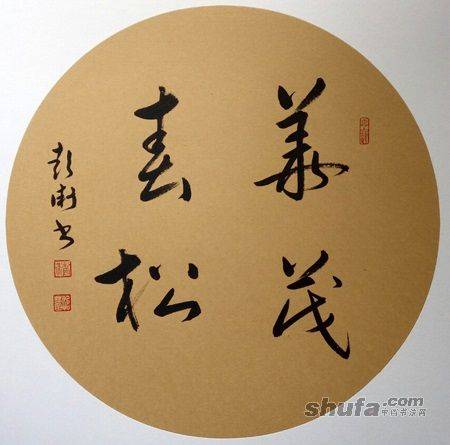 華茂
春松
彭衛书
shufa.com
中国书法网